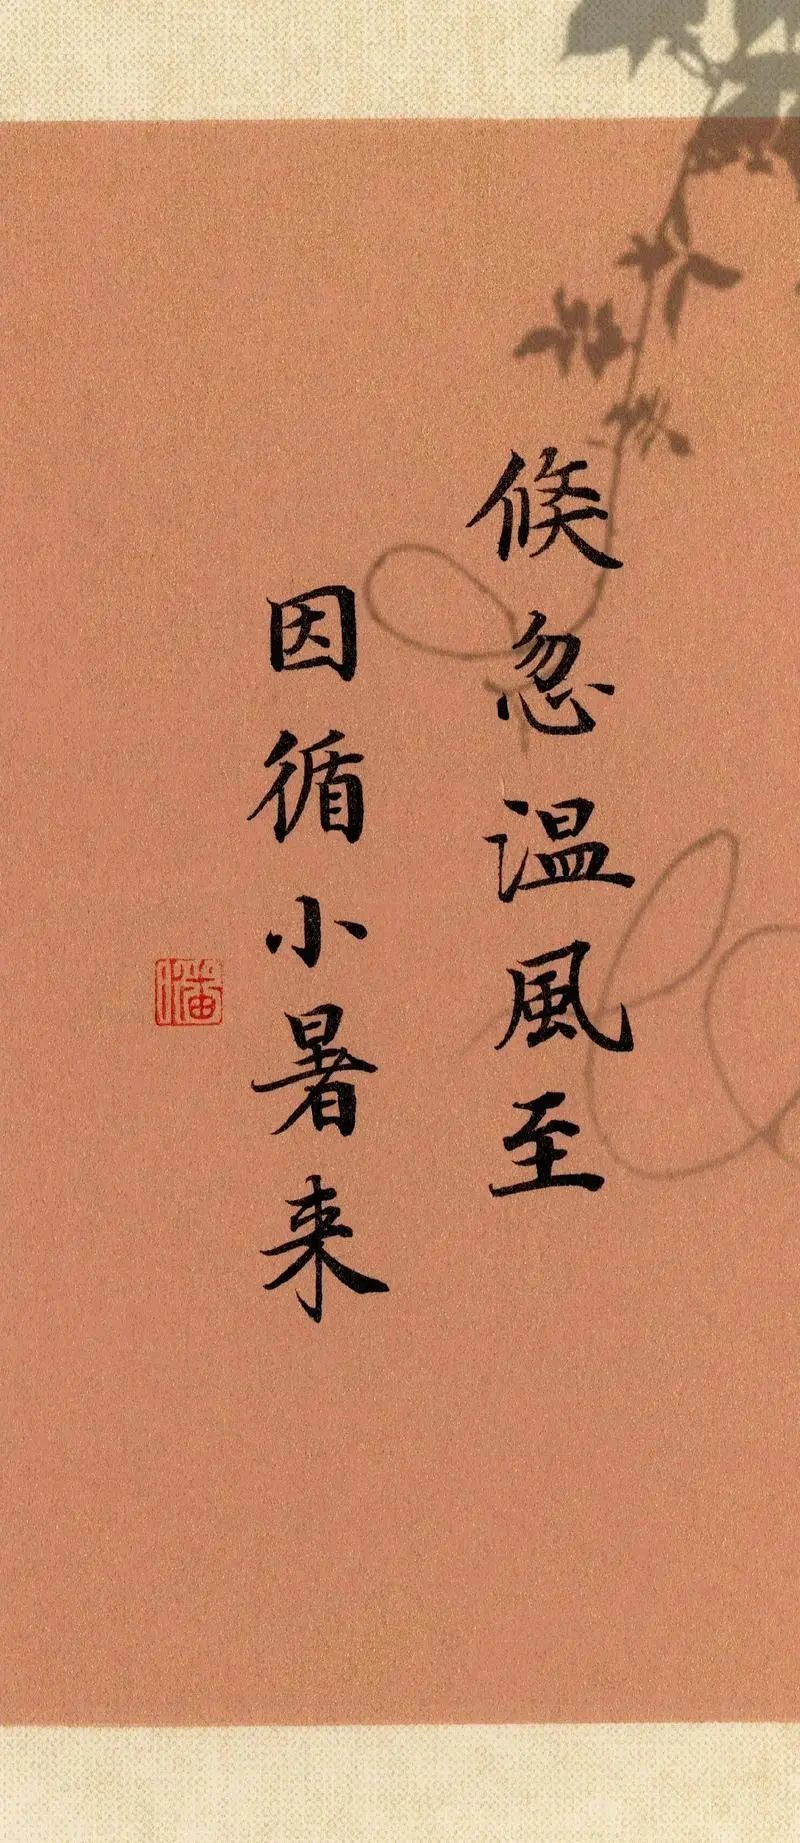 倏忽温風至
因循小暑来
潘